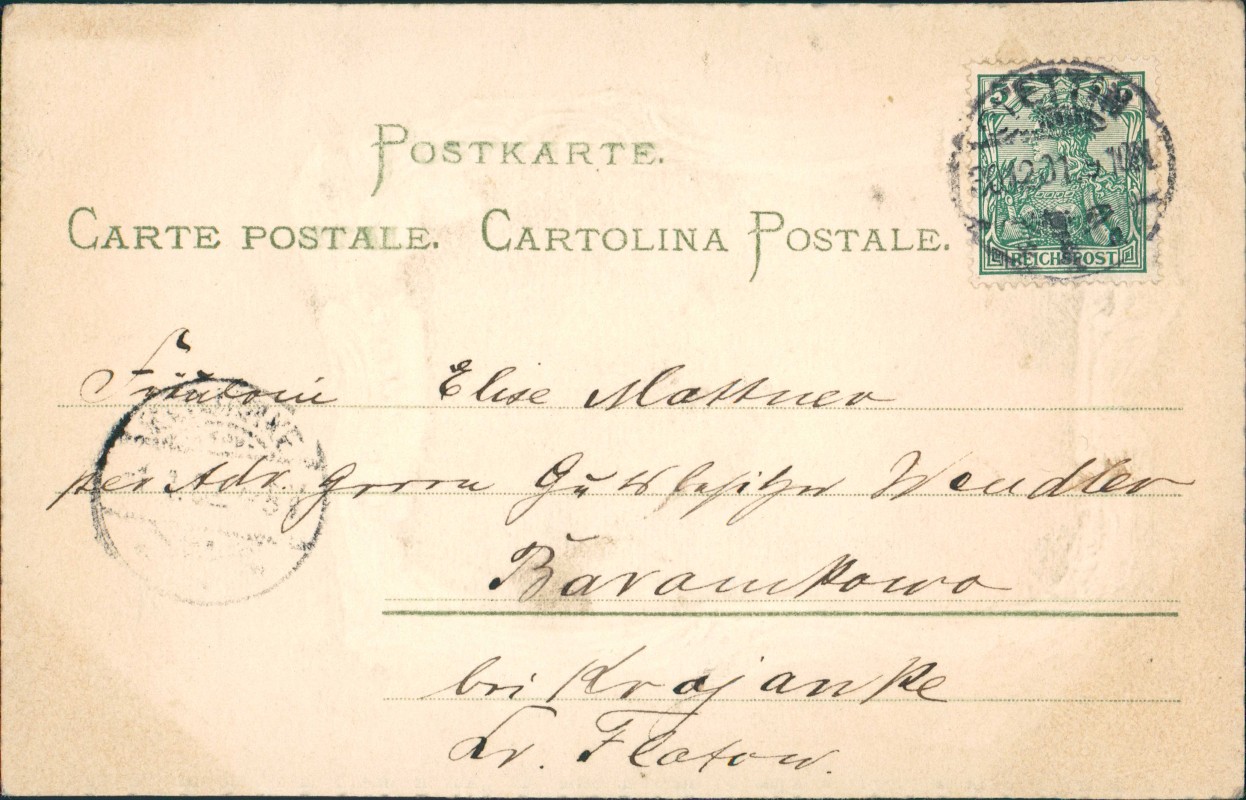 POSTKARTE.
CARTE POSTALE. CARTOLINA POSTALE.
5 5
STETTIN
12.01
REICHSPOST
Fräulein Elise Mattner
per Adr. Herrn Gutsbesitzer Wendler
Barankowo
bei Krojanke
Kr. Flatow.